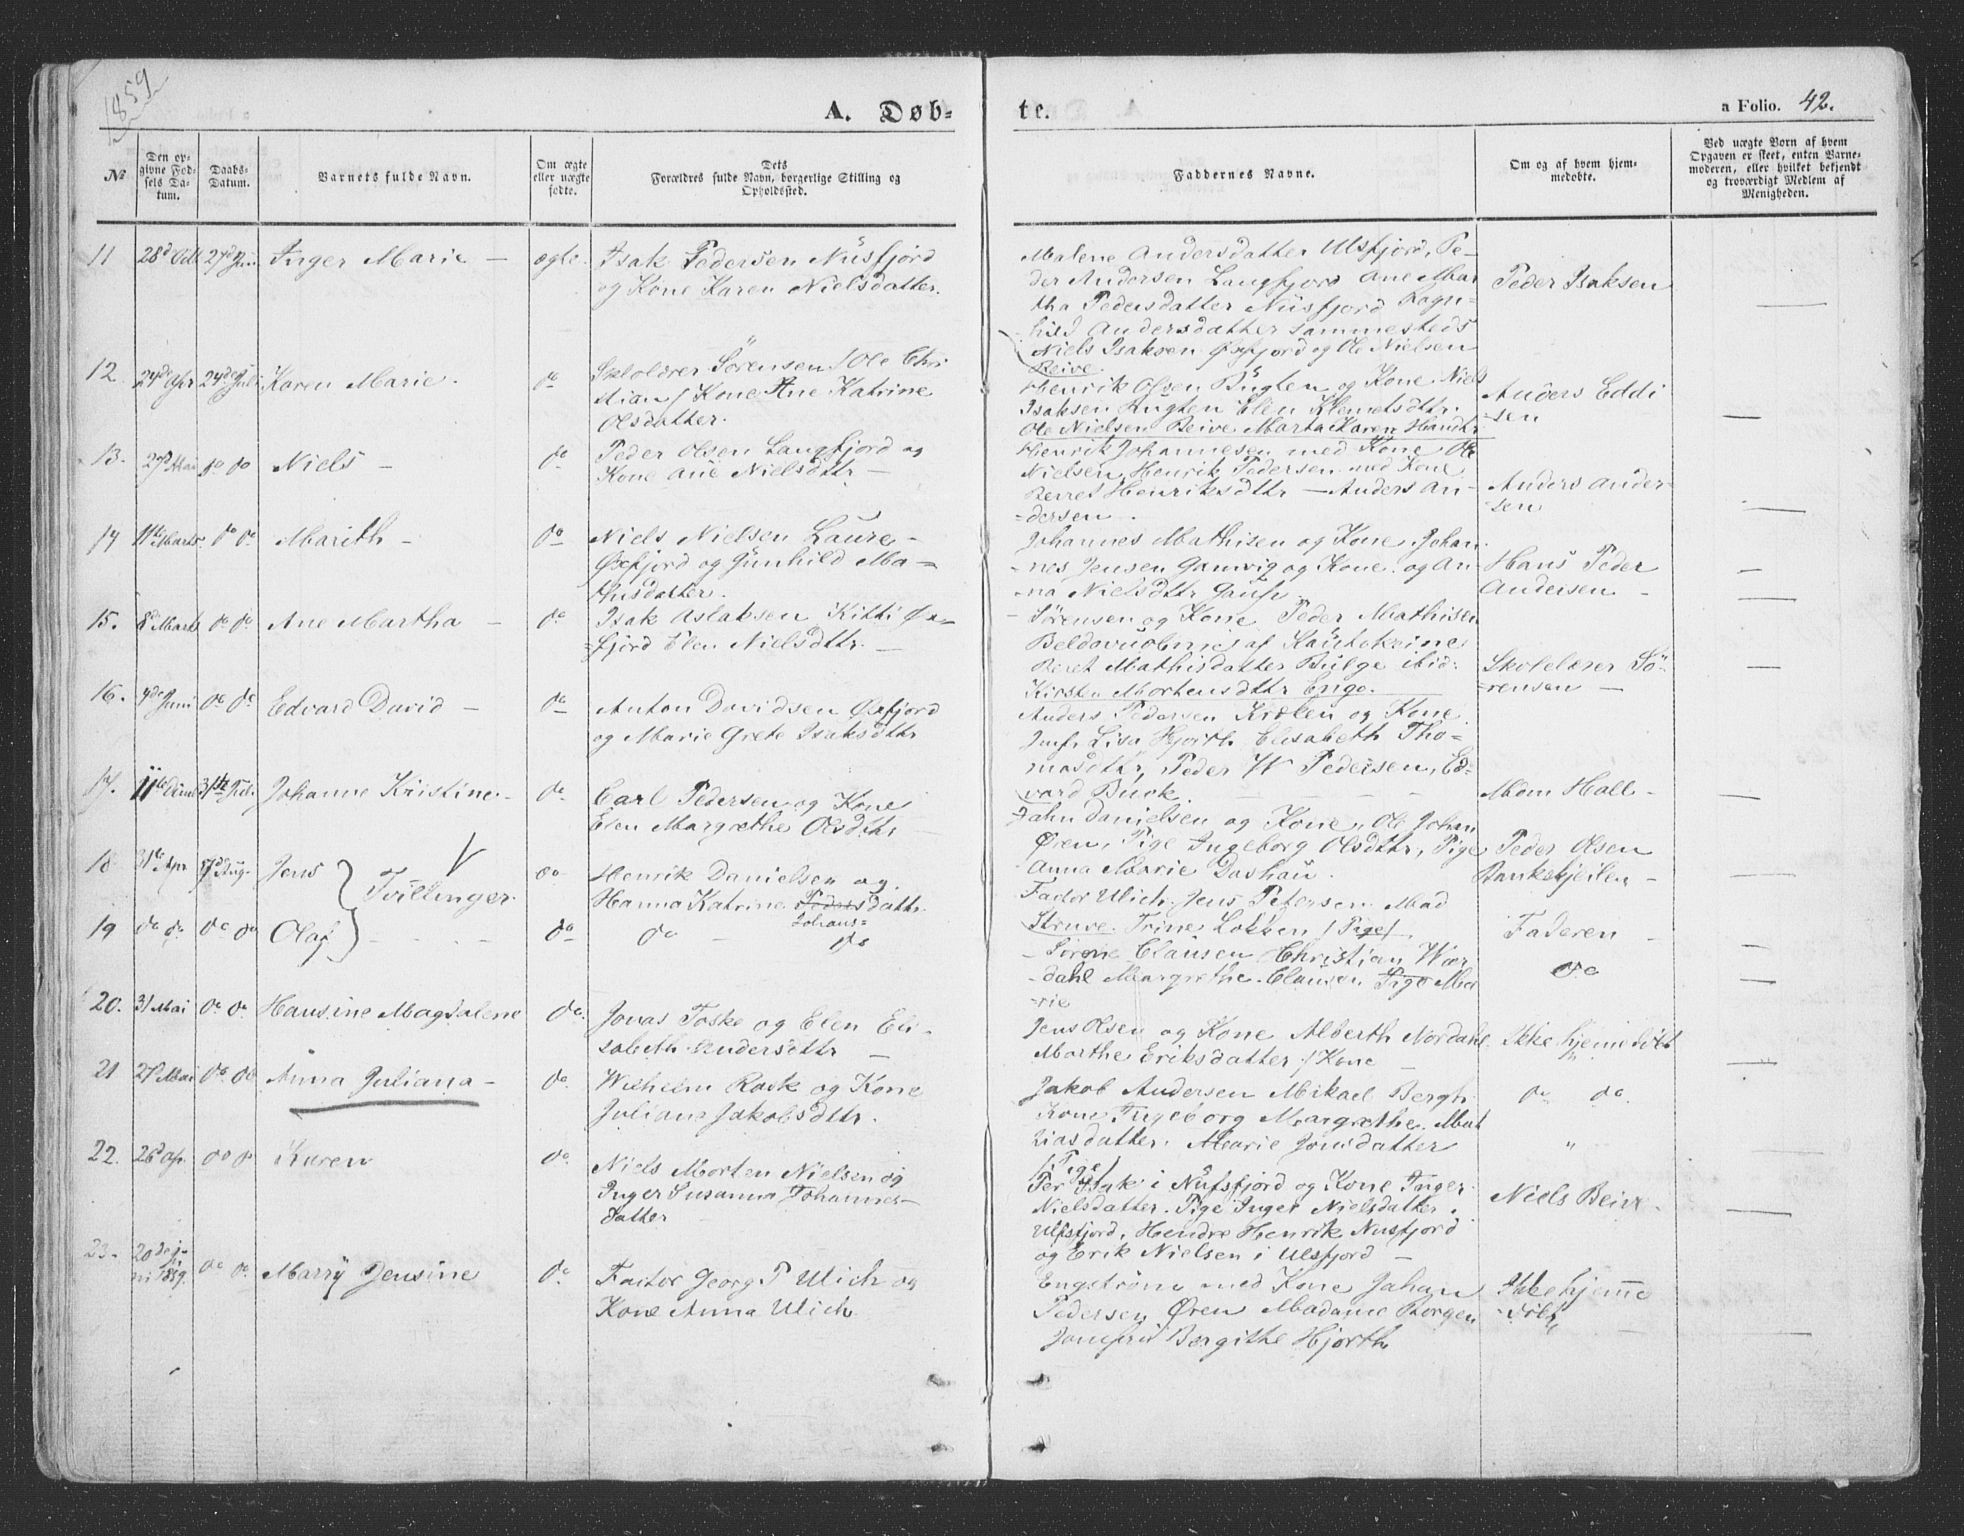 1859
A. Døb-
te.
a Folio. 42.
№
Den op-
givne Fød-
sels Da-
tum.
Daabs-
Datum.
Barnets fulde Navn.
Om ægte
eller uægte
fødte.
Dets
Forældres fulde Navn, borgerlige Stilling og
Opholdssted.
Faddernes Navne.
Om og af hvem hjem-
medøbte.
Ved uægte Børn af hvem
Opgaven er skeet, enten Barne-
moderen, eller hvilket bekjendt
og troværdigt Medlem af
Menigheden.
11 27d Juni Inger Marie — ægte.
Isak Pedersen Nüsfjord
og Kone Karen Nielsdatter.
Malene Andersdatter Ulsfjord, Pe-
der Andersen Langfjord Ane Mar
tha Pedersdatter Nüsfjord Ragn-
hild Andersdatter sammesteds
Niels Isaksen Øxfjord og Ole Nielsen
Reive.
Peder Isaksen
12. 24de Apr 24de Juli Karen Marie. do
Skolelærer Sörensen / Ole Chri
stian / Kone Ane Katrine
Olsdatter.
Henrik Olsen Bügten og Kone Niels
Isaksen Bugten Elen Klemetsdttr.
Ole Nielsen Reive Marta Karen Hansdtr
Anders Eddi
-sen
13. 27 Mai do do Niels — do
Peder Olsen Langfjord og
Kone Ane Nielsdttr —
Henrik Johannesen med Kone Ole
Nielsen Henrik Pedersen med Kone
Berret Henriksdttr — Anders An-
-dersen.
Anders Ander-
-sen
14 11te Marts. do do Marith — do
Niels Nielsen Laure —
Øxfjord og Gunhild Ma-
thisdatter.
Johannes Mathisen og Kone. Johan
-nes Jensen Gamvig og Kone. og An-
-na Nielsdttr
Hans Peder
Andersen —
15. 8d Marts do do Ane Martha — do
Isak Aslaksen Kitti Øx-
fjord Elen Nielsdttr. —
- Sörensen og Kone Peder Mathisen
af Kautokeino
Beret Mathisdatter Bulge ibid:
Kirsten Mortensdttr Enge.
Skolelærer Sö-
-rensen —
16. 4de Juni do do Edvard David — do
Anton Davidsen Øxfjord
og Marie Grete Isaksdttr
Anders Pedersen Kroken og Kone
Jmfr Lisa Hjorth Elisabeth Tho-
masdttr, Peder W Pedersen, Ed-
vard Buck.
Mom Hall —
17. 31te Juli Johanne Kristine. — do
Carl Pedersen og Kone
Elen Margrethe Olsdttr —
John Danielsen og Kone, Ole Johan
Øren, Pige Ingeborg Olsdttr, Pige
Anna Marie Dashau.
Peder Olsen
18. 31te Apr 7d Aug. Jens } Tvillinger. do
Henrik Danielsen og
Hanna Katrine Pedersdattr.
Johans=
Factor Ulich. Jens Petersen Mad
Struve. Trine Lokken / Pige /
Faderen —
19 do do do do Olaf } — — — do
do — do
- Sirene Clausen Christian Wær
-dahl Margrethe. Clausen Pige Ma
-rie
do
20. 31 Mai do do Hansine Magdalene do.
Jonas Foske og Elen Eli-
sabeth Andersdttr —
Jens Olsen og Kone Alberth Nordahl.
Marthe Eriksdatter / Kone —
Ikke hjemedöbt
21 27 Mai do do Anna Juliana — do
Wilhelm Rask og Kone
Juliana Jakobsdttr.
Jakob Andersen Mikael Bergh
Kone Ingeborg Margrethe. Mat
hiasdatter. Marie Jonsdatter
/ Pige /
do do.
"
22. 26d Apr. do do Karen do
Niels Morten Nielsen og
Inger Susanna Johannes-
datter —
Per Isak i Nüfsfjord og Kone Inger
Nielsdatter. Pige Inger Nielsdatter.
Ulfsfjord, Hendre Henrik Nusfjord
og Erik Nielsen i Ulsfjord —
Niels Beive.
23. do do. Marry Jensine do
Factor Georg P Ulich og
Kone Anna Ulich.
Engström med Kone Johan
Pedersen Øren Madame Borgen
Jomfru Bergithe Hjorth
Ikke hjeme
döbt